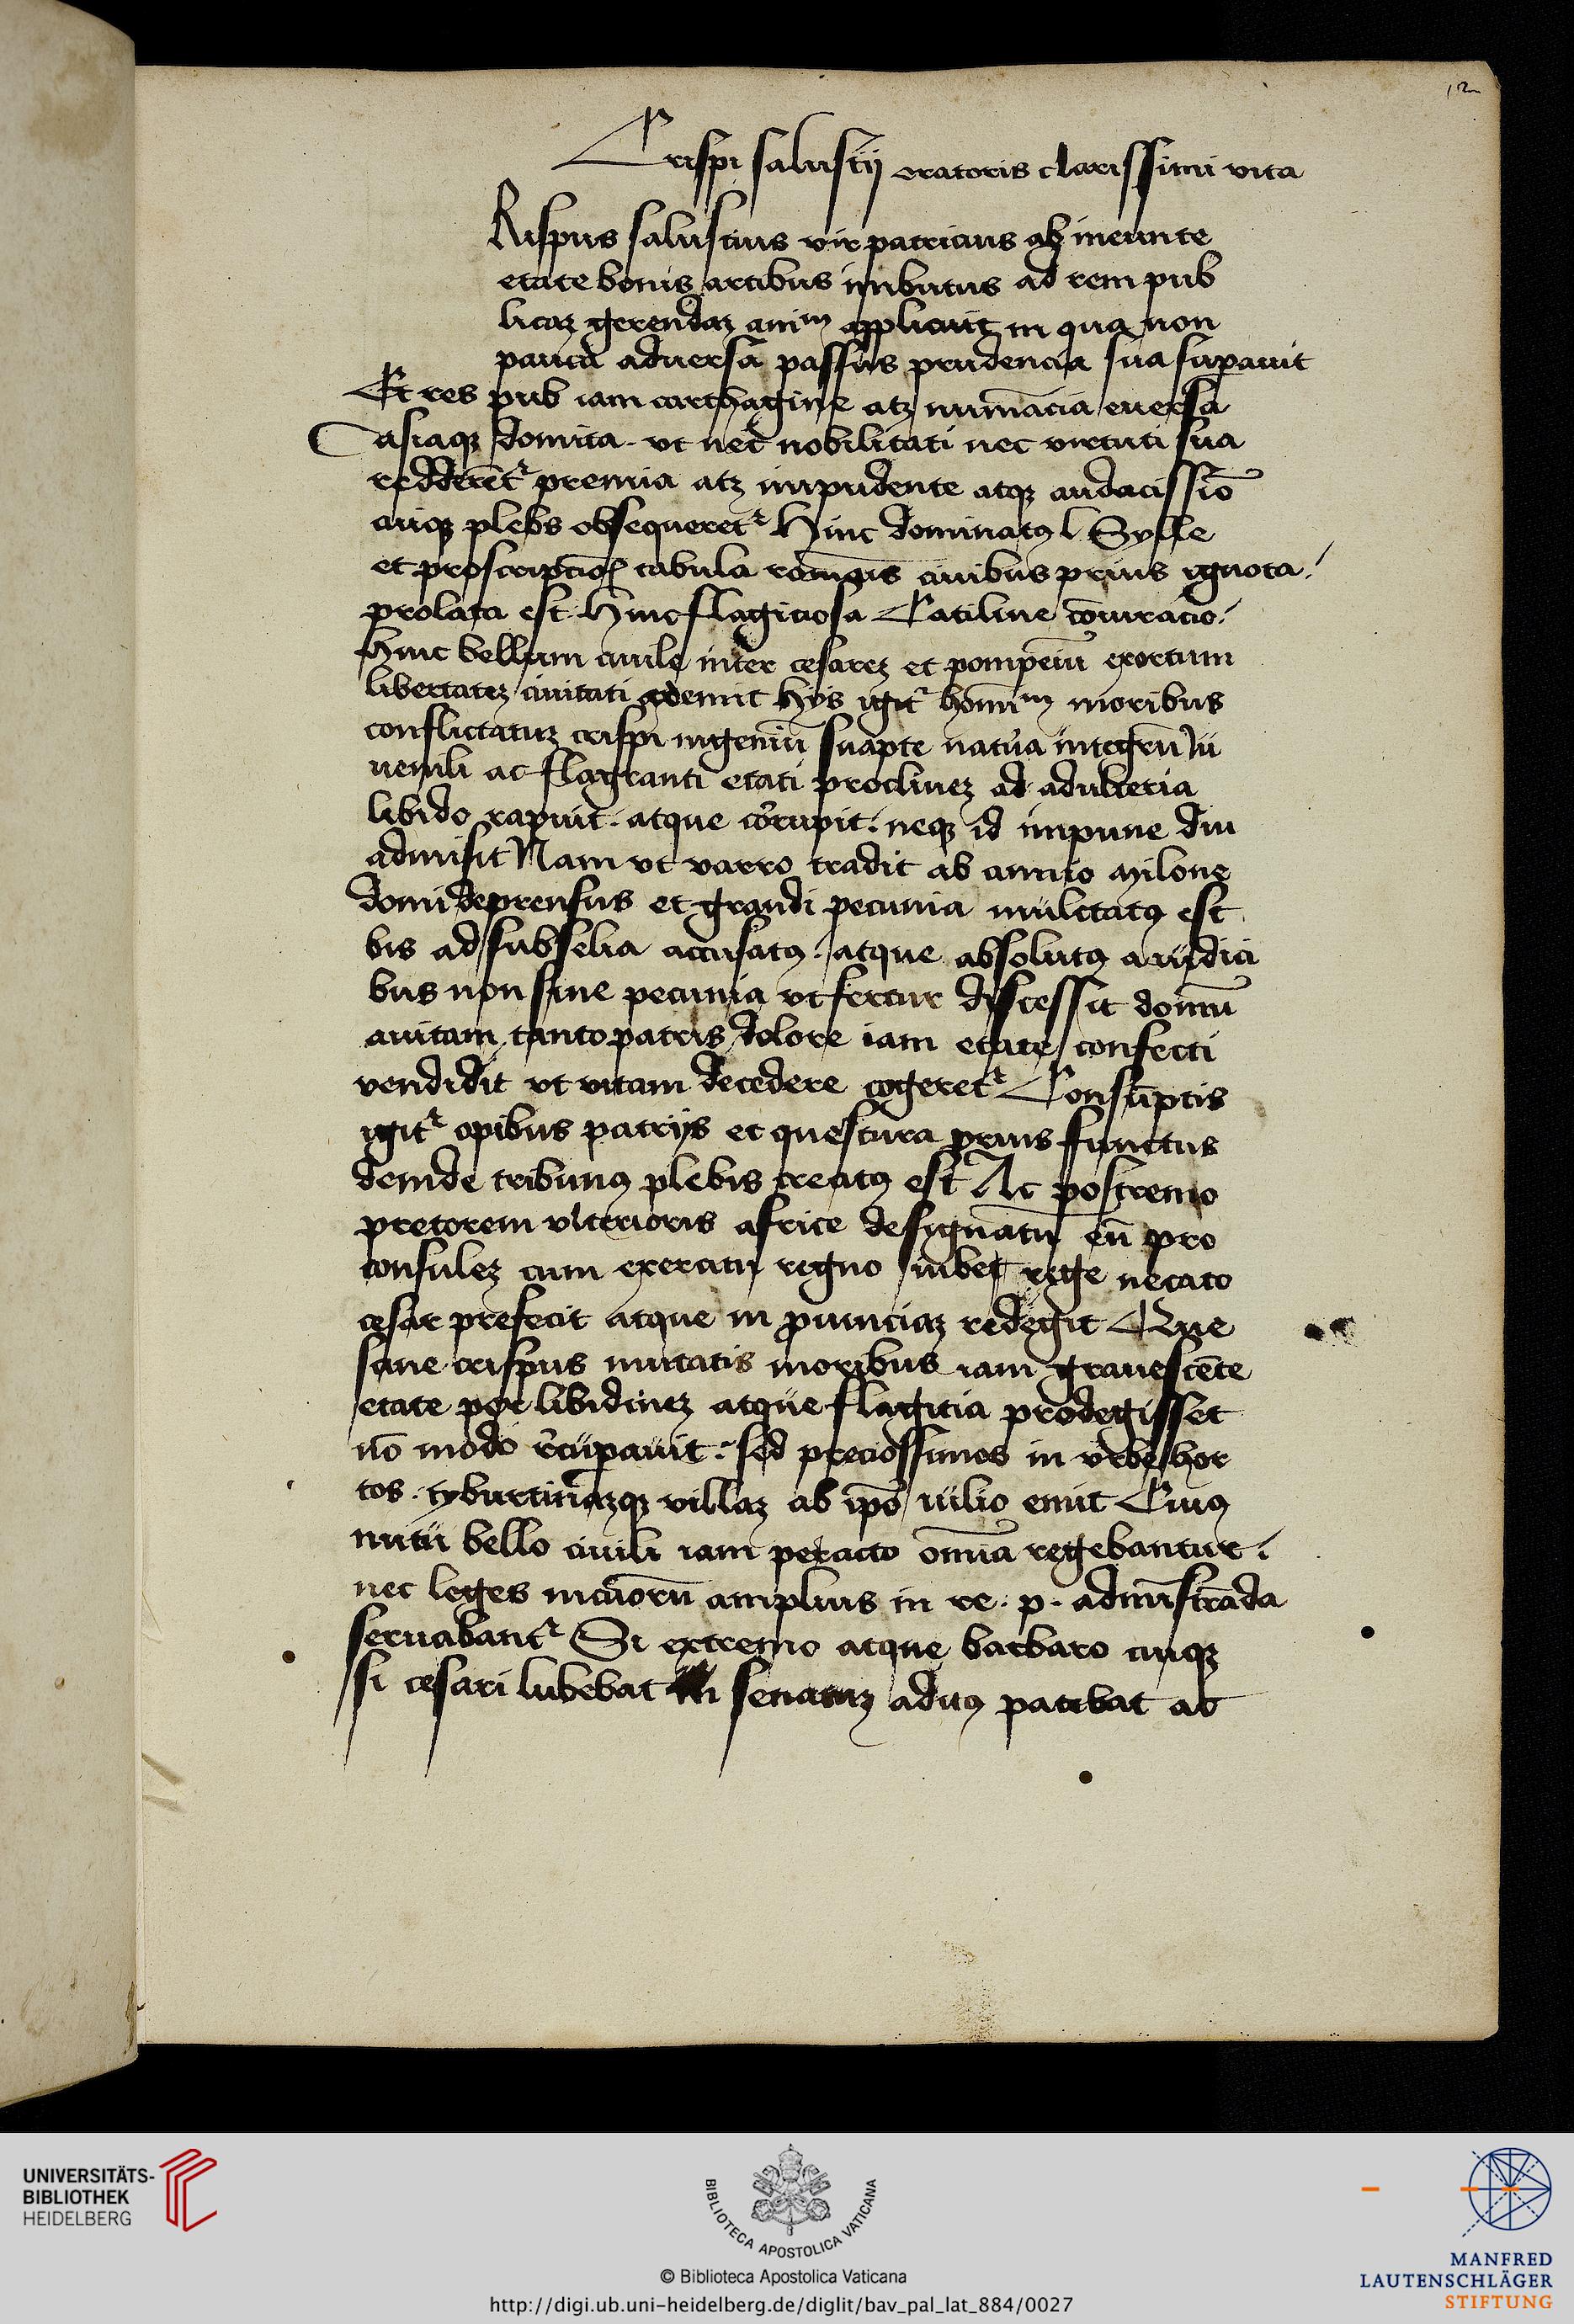 12
Crispi salustij oratoris clarissimi vita
Rispus salustius vir patricius ab ineunte
etate bonis artibus imbutus ad rem pub
licaz gerendaz animͫ applicuit in qua non
pauca aduersa passus prudencia sua supauit
Et res pub iam carthagine atz numācia euersa
asiaqz domita. vt nec nobilitati nec virtuti sua
redderētᷣ premia atz impudente atqz audacissiō
cuiqz plebs obsequeretᷣ Hinc dominatꝰ l Sylle
et proscripcioꝭ tabula romāis ciuibus prius ignota
prolata est Hinc flagiciosa Catiline cōiuracio
hinc bellum ciuile inter cesarez et pompeiū exortum
libertatez ciuitati ademit hijs igitᷣ homīͫ moribus
conflictatuz crispi ingeniū suapte natura integrū Iu
uenili ac flagranti etati procliuez ad adulteria
libido rapuit. atque corrupit. neqz id impune diu
admisit Nam vt varro tradit ab annio milone
domi deprensus et grandi pecunia mulctatꝰ est
bis ad subselia accusatꝰ. atque absolutꝰ a iudici
bus non sine pecunia vt fertur discessit domū
auitam tanto patris dolore iam etate confecti
vendidit vt vitam decedere cogeretᷣ Consūptis
igitᷣ opibus patrijs et questura prius functus
deinde tribunꝰ plebis creatꝰ est Ac postremo
pretorem vlterioris africe designatū eū pro
consulez cum exercitu regno iube rege necato
cesar prefecit atque in ꝓuinciaz redegit Que
sane crispus mutatis moribus iam grauescēte
etate per libidinez atque flagitia prodegisset
nō modo rcupauit. sed preciossimos in vrbe hor
tos. tyburtinazqz villaz ab ipō iulio emit Cuiꝰ
nutu bello ciuili iam peracto omīa regebantur.
nec leges maiorū amplius in re. p. admīstrāda
seruabantᷣ Si extremo atque barbaro cuiqz
si cesari lubebat in senatuz aditꝰ patebat ac
UNIVERSITÄTS-
BIBLIOTHEK
HEIDELBERG
BIBLIOTECA APOSTOLICA VATICANA
© Biblioteca Apostolica Vaticana
http://digi.ub.uni-heidelberg.de/diglit/bav_pal_lat_884/0027
MANFRED
LAUTENSCHLÄGER
STIFTUNG